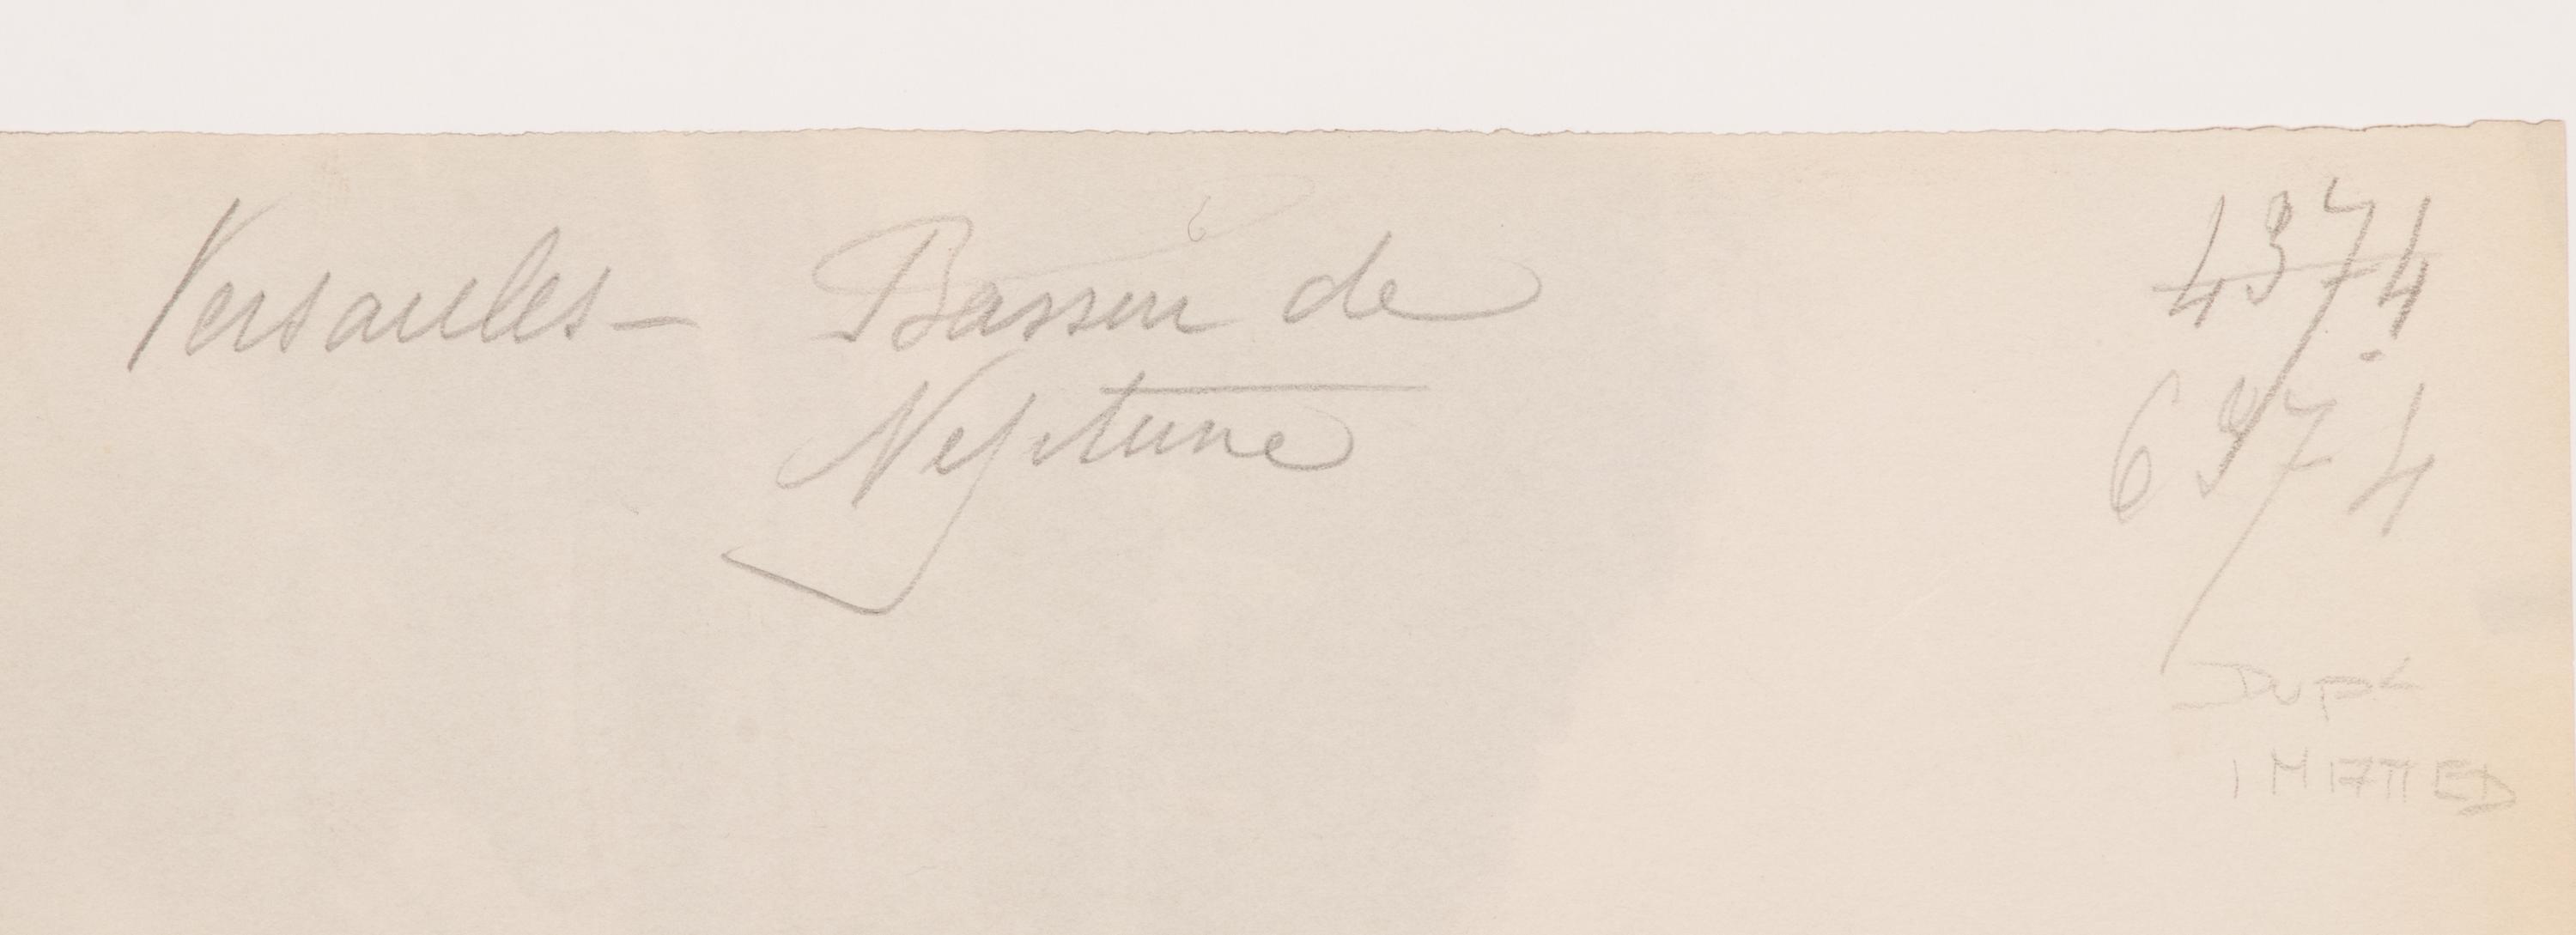 Versailles - Bassin de
Neptune
4374
6374
Dupl
1 MATTED